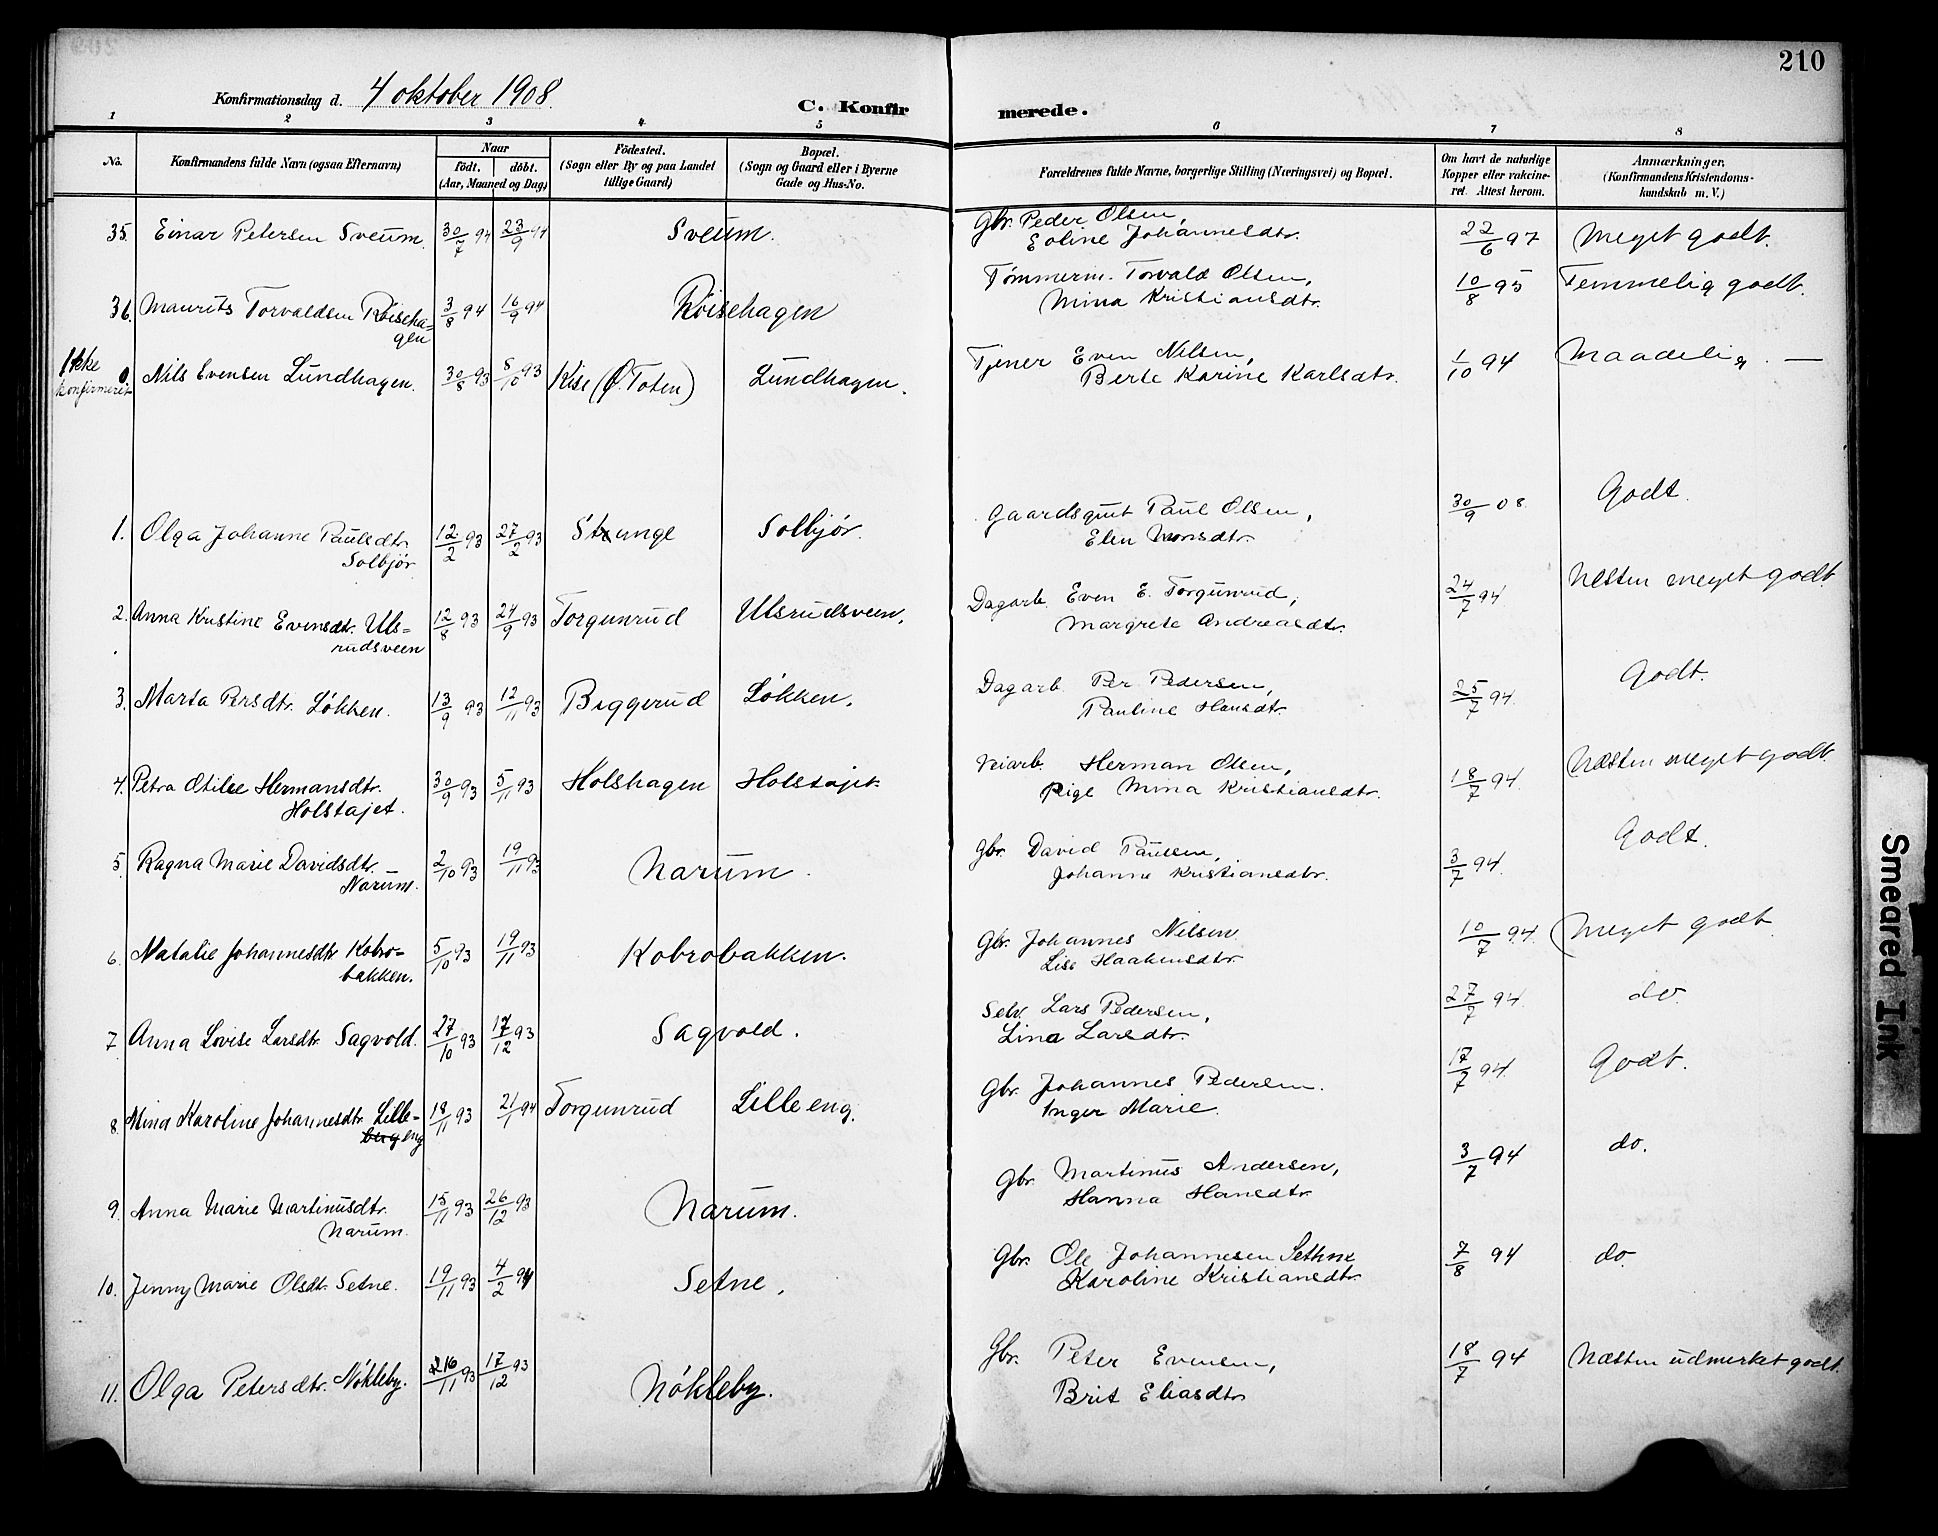 210
Konfirmationsdag d. 4 oktober 1908.
C. Konfirmerede.
1 2 3 4 5 6 7 8
No. Konfirmandens fulde Navn (ogsaa Efternavn) Naar født. døbt. (Aar, Maaned og Dag) Fødested. (Sogn eller By og paa Landet tillige Gaard) Bopæl. (Sogn og Gaard eller i Byerne Gade og Hus-No. Forældrenes fulde Navne, borgerlige Stilling (Næringsvei) og Bopæl. Om havt de naturlige Kopper eller vakcineret. Attest herom. Anmærkninger, (Konfirmandens Kristendomskundskab m. V.)
35. Einar Petersen Sveum. 30/7 94 23/9 94 Sveum. Gbr. Peder Olsen, Eoline Johannesdtr. 22/6 97 Meget godt.
36. Maurits Torvaldsen Røisehagen 3/8 94 16/9 94 Røisehagen Tømmerm. Torvald Olsen, Mina Kristiansdtr. 10/8 95 Temmelig godt.
Ikke konfirmeret 0. Nils Evensen Lundhagen. 30/8 93 8/10 93 Kise (Ø. Toten) Lundhagen. Tjener Even Nilsen, Berte Karine Karlsdtr. 1/10 94 Maadelig. —
1. Olga Johanne Paulsdtr. Solbjør 12/2 93 27/2 93 Stunge Solbjør. Gaardsgut Paul Olsen, Elen Monsdtr. 30/9 08. Godt.
2. Anna Kristine Evensdtr. Ulsrudsveen 12/8 93 24/9 93 Torgunrud Ulsrudsveen. Dagarb. Even E. Torgunrud, Margrete Andreasdtr. 24/7 94 Næsten meget godt
3. Marta Persdtr. Løkken. 13/9 93 12/11 93 Byggerud Løkken. Dagarb. Per Pedersen, Pauline Hansdtr. 25/7 94. Godt.
4. Petra Otilie Hermansdtr. Holstajet. 30/9 93 5/11 93 Holshagen Holstajet. Veiarb. Herman Olsen, Pige Mina Kristiansdtr. 18/7 94. Næsten meget godt.
5. Ragna Marie Davidsdtr. Narum. 2/10 93 19/11 93 Narum. Gbr. David Paulsen, Johanne Kristiansdtr. 3/7 94. Godt.
6. Natalie Johannesdtr Kobrobakken. 5/10 93 19/11 93 Kobrobakken. Gbr. Johannes Nilsen Lise Haakensdtr. 10/7 94. Meget godt
7 Anna Lovise Larsdtr. Sagvold. 27/10 93 17/12 93 Sagvold. Selv. Lars Pedersen, Lina Larsdtr. 27/7 94. do.
8. Mina Karoline Johannesdtr. Lillebergeng 18/11 93 21/1 94 Torgunrud Lilleeng. Gbr. Johannes Pedersen. Inger Marie. 17/7 94. Godt.
9. Anna Marie Martinusdtr. Narum. 15/11 93 26/12 93 Narum. Gbr. Martinus Andersen, Hanna Hansdtr 3/7 94 do.
10. Jenny Marie Olsdtr. Setne. 19/11 93 4/2 94 Setne. Gbr. Ole Johannesen Sethne Karoline Kristiansdtr. 7/8 94 do.
11. Olga Petersdtr. Nøkleby. 26/11 93 17/12 93 Nøkleby. Gbr. Peter Evensen, Brit Eliasdtr 18/7 94 Næsten udmerket godt.
Smeared Ink